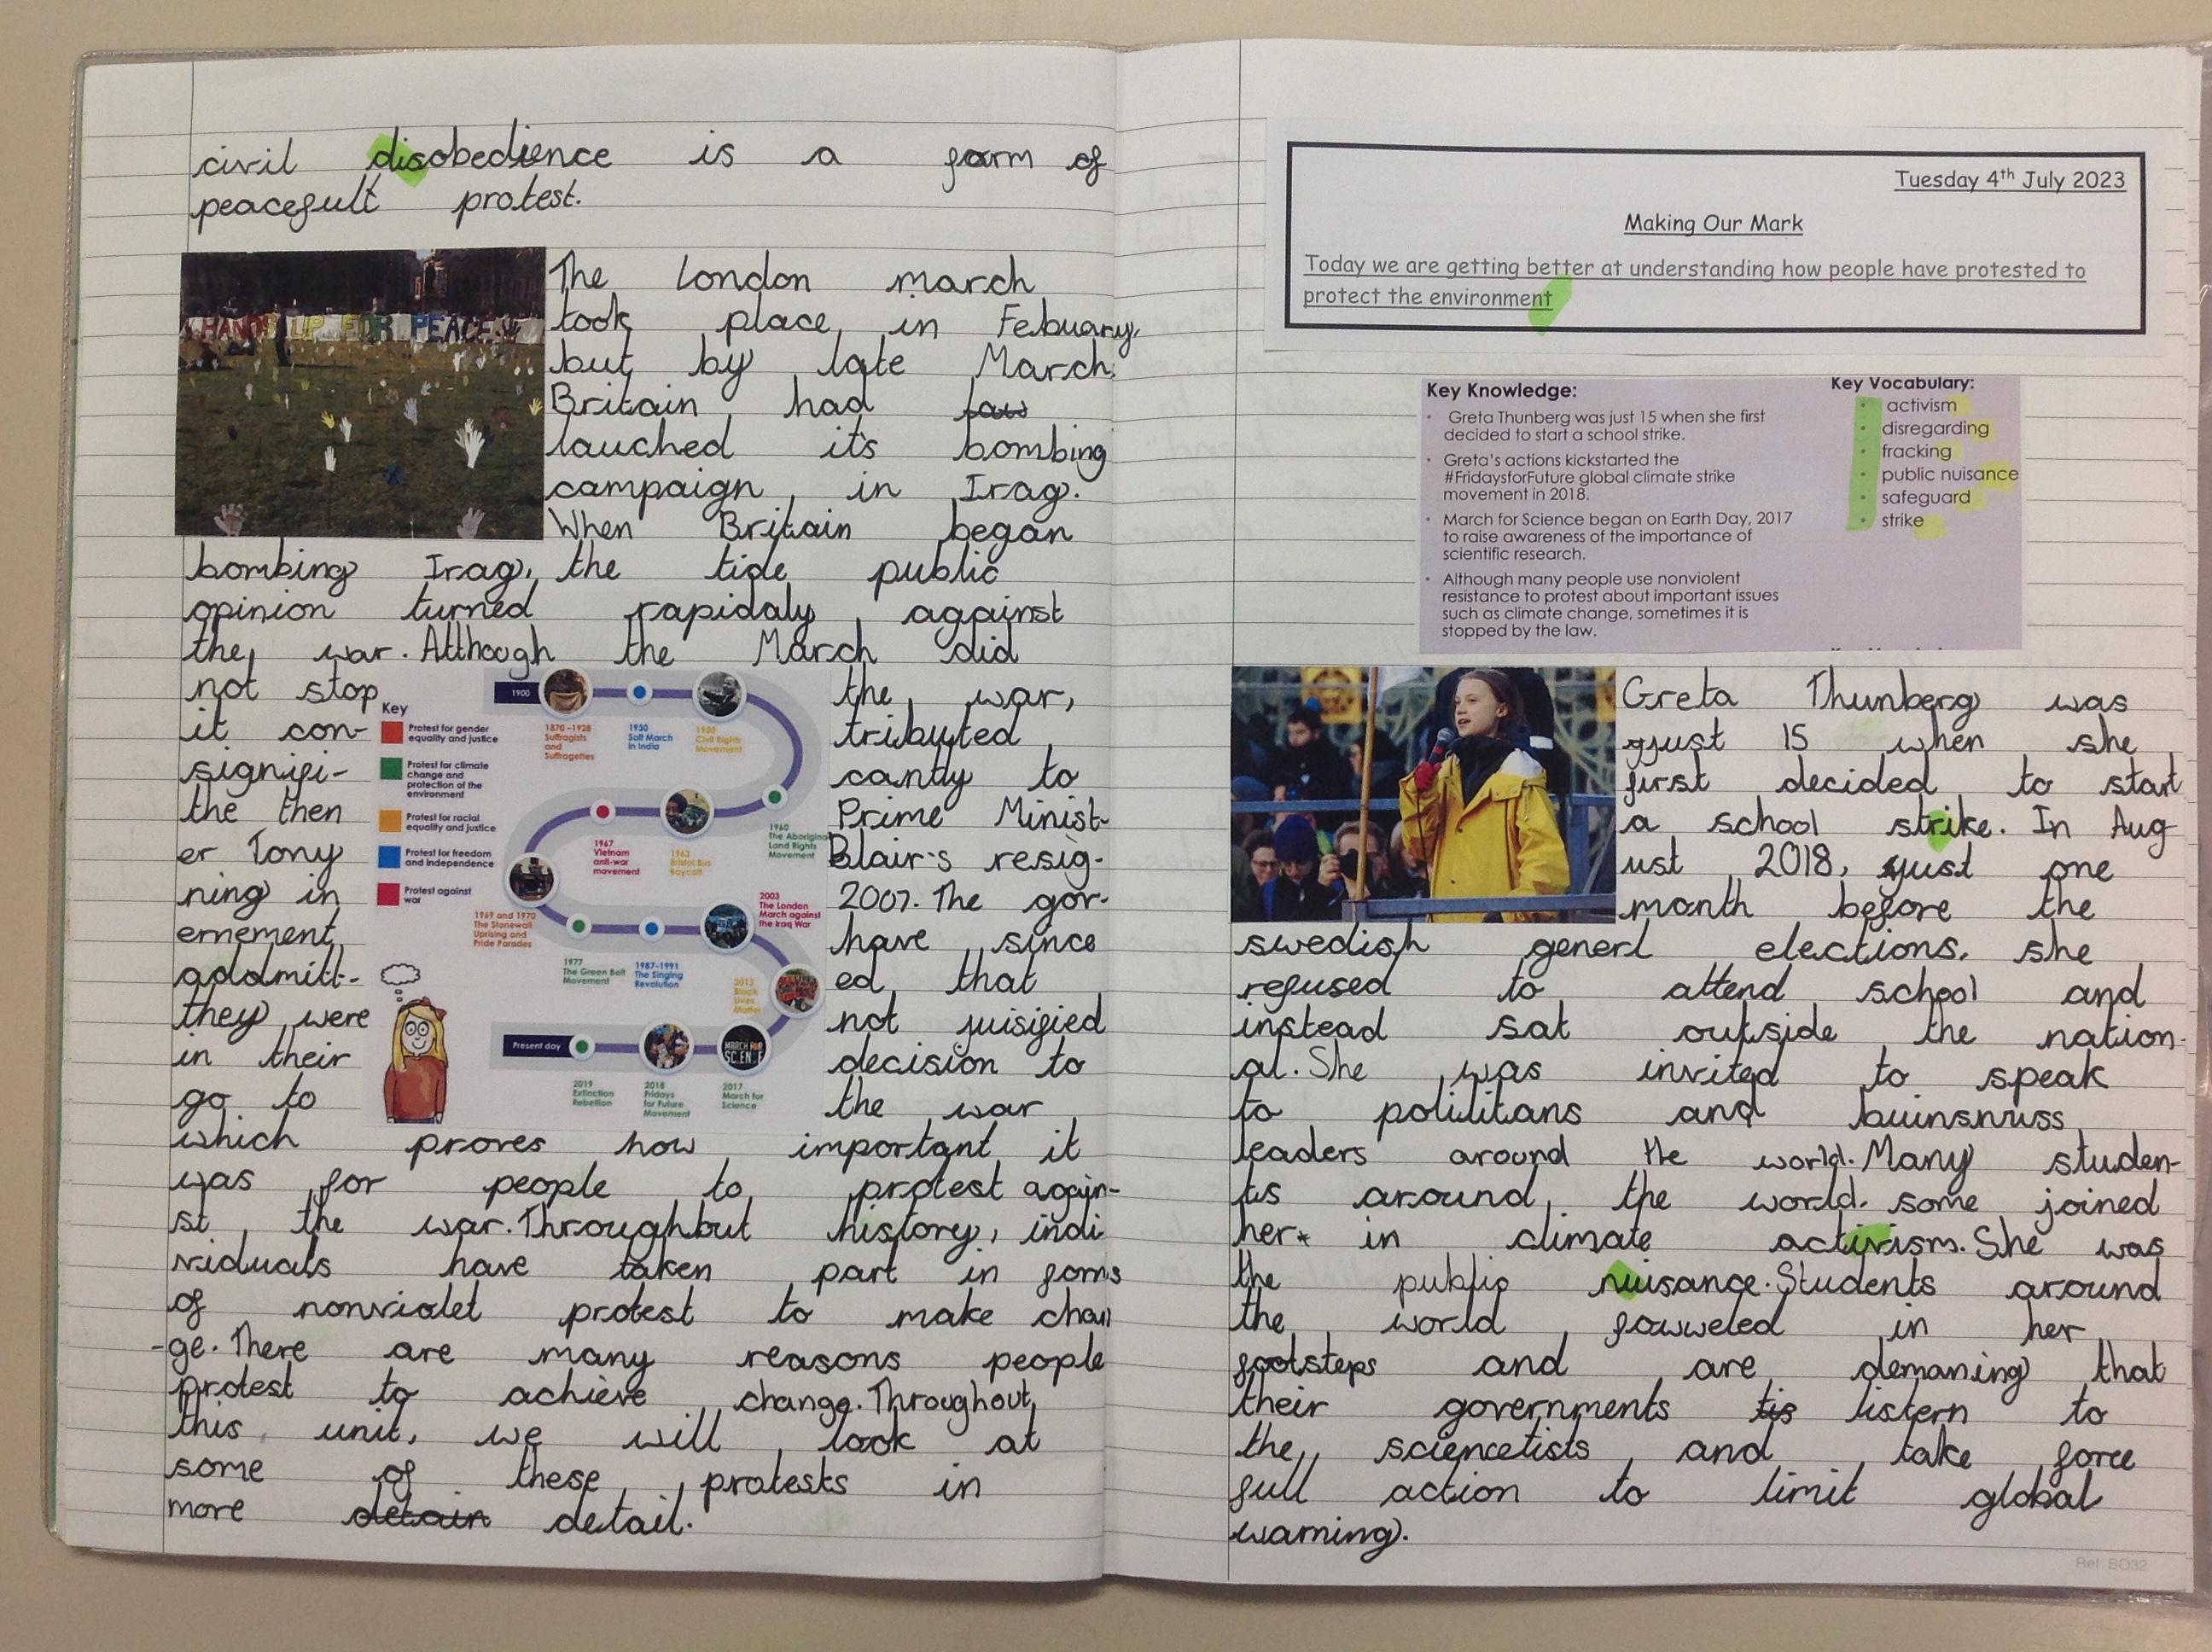 civil disobedience is a form of
peacefull protest.
HANDS UP FOR PEACE
The London march
took place in Febuary,
but by late March,
Britain had law
lauched it's bombing
campaign in Iraq.
When Britain began
bombing Iraq, the tide public
opinion turned rapidaly against
the war. Although the March did
not stop the war,
it con- tributed
signifi- cantly to
the then Prime Minist-
er Tony Blair's resig-
ning in 2007. The gov-
ernement have since
addmitt- ed that
they were not juisified
in their decision to
go to the war
which proves how important it
was for people to protest again-
st the war. Throughbut history, indi
viduals have taken part in foms
of nonviolet protest to make chan
-ge. There are many reasons people
protest to achieve change. Throughout
this unit, we will look at
some of these protests in
more detain detail.
Key
Protest for gender
equality and justice
Protest for climate
change and
protection of the
environment
Protest for racial
equality and justice
Protest for freedom
and independence
Protest against
war
1900
1870–1928
Suffragists
and
Suffragettes
1930
Salt March
in India
Civil Rights
Movement
1967
Vietnam
anti-war
movement
1963
Bristol Bus
Boycott
1960
The Aboriginal
Land Rights
Movement
1969 and 1970
The Stonewall
Uprising and
Pride Parades
1977
The Green Belt
Movement
1987–1991
The Singing
Revolution
2003
The London
March against
the Iraq War
2013
Black
Lives
Matter
Present day
MARCH FOR
SCIENCE
2019
Extinction
Rebellion
2018
Fridays
for Future
Movement
2017
March for
Science
Tuesday 4th July 2023
Making Our Mark
Today we are getting better at understanding how people have protested to
protect the environment
Key Knowledge:
• Greta Thunberg was just 15 when she first
decided to start a school strike.
• Greta's actions kickstarted the
#FridaysforFuture global climate strike
movement in 2018.
• March for Science began on Earth Day, 2017
to raise awareness of the importance of
scientific research.
• Although many people use nonviolent
resistance to protest about important issues
such as climate change, sometimes it is
stopped by the law.
Key Vocabulary:
• activism
• disregarding
• fracking
• public nuisance
• safeguard
• strike
Greta Thunberg was
just 15 when she
first decided to start
a school strike. In Aug
ust 2018, just one
month before the
swedish generl elections, she
refused to attend school and
instead sat outside the nation-
al. She was invited to speak
to polititans and buinsnuss
leaders around the world. Many studen-
ts around the world. some joined
her in climate activism. She was
the public nuisance. Students around
the world fowweled in her
footsteps and are demaning that
their governments tis listern to
the sciencetists and take force
full action to limit global
warning.
Ref: BO32